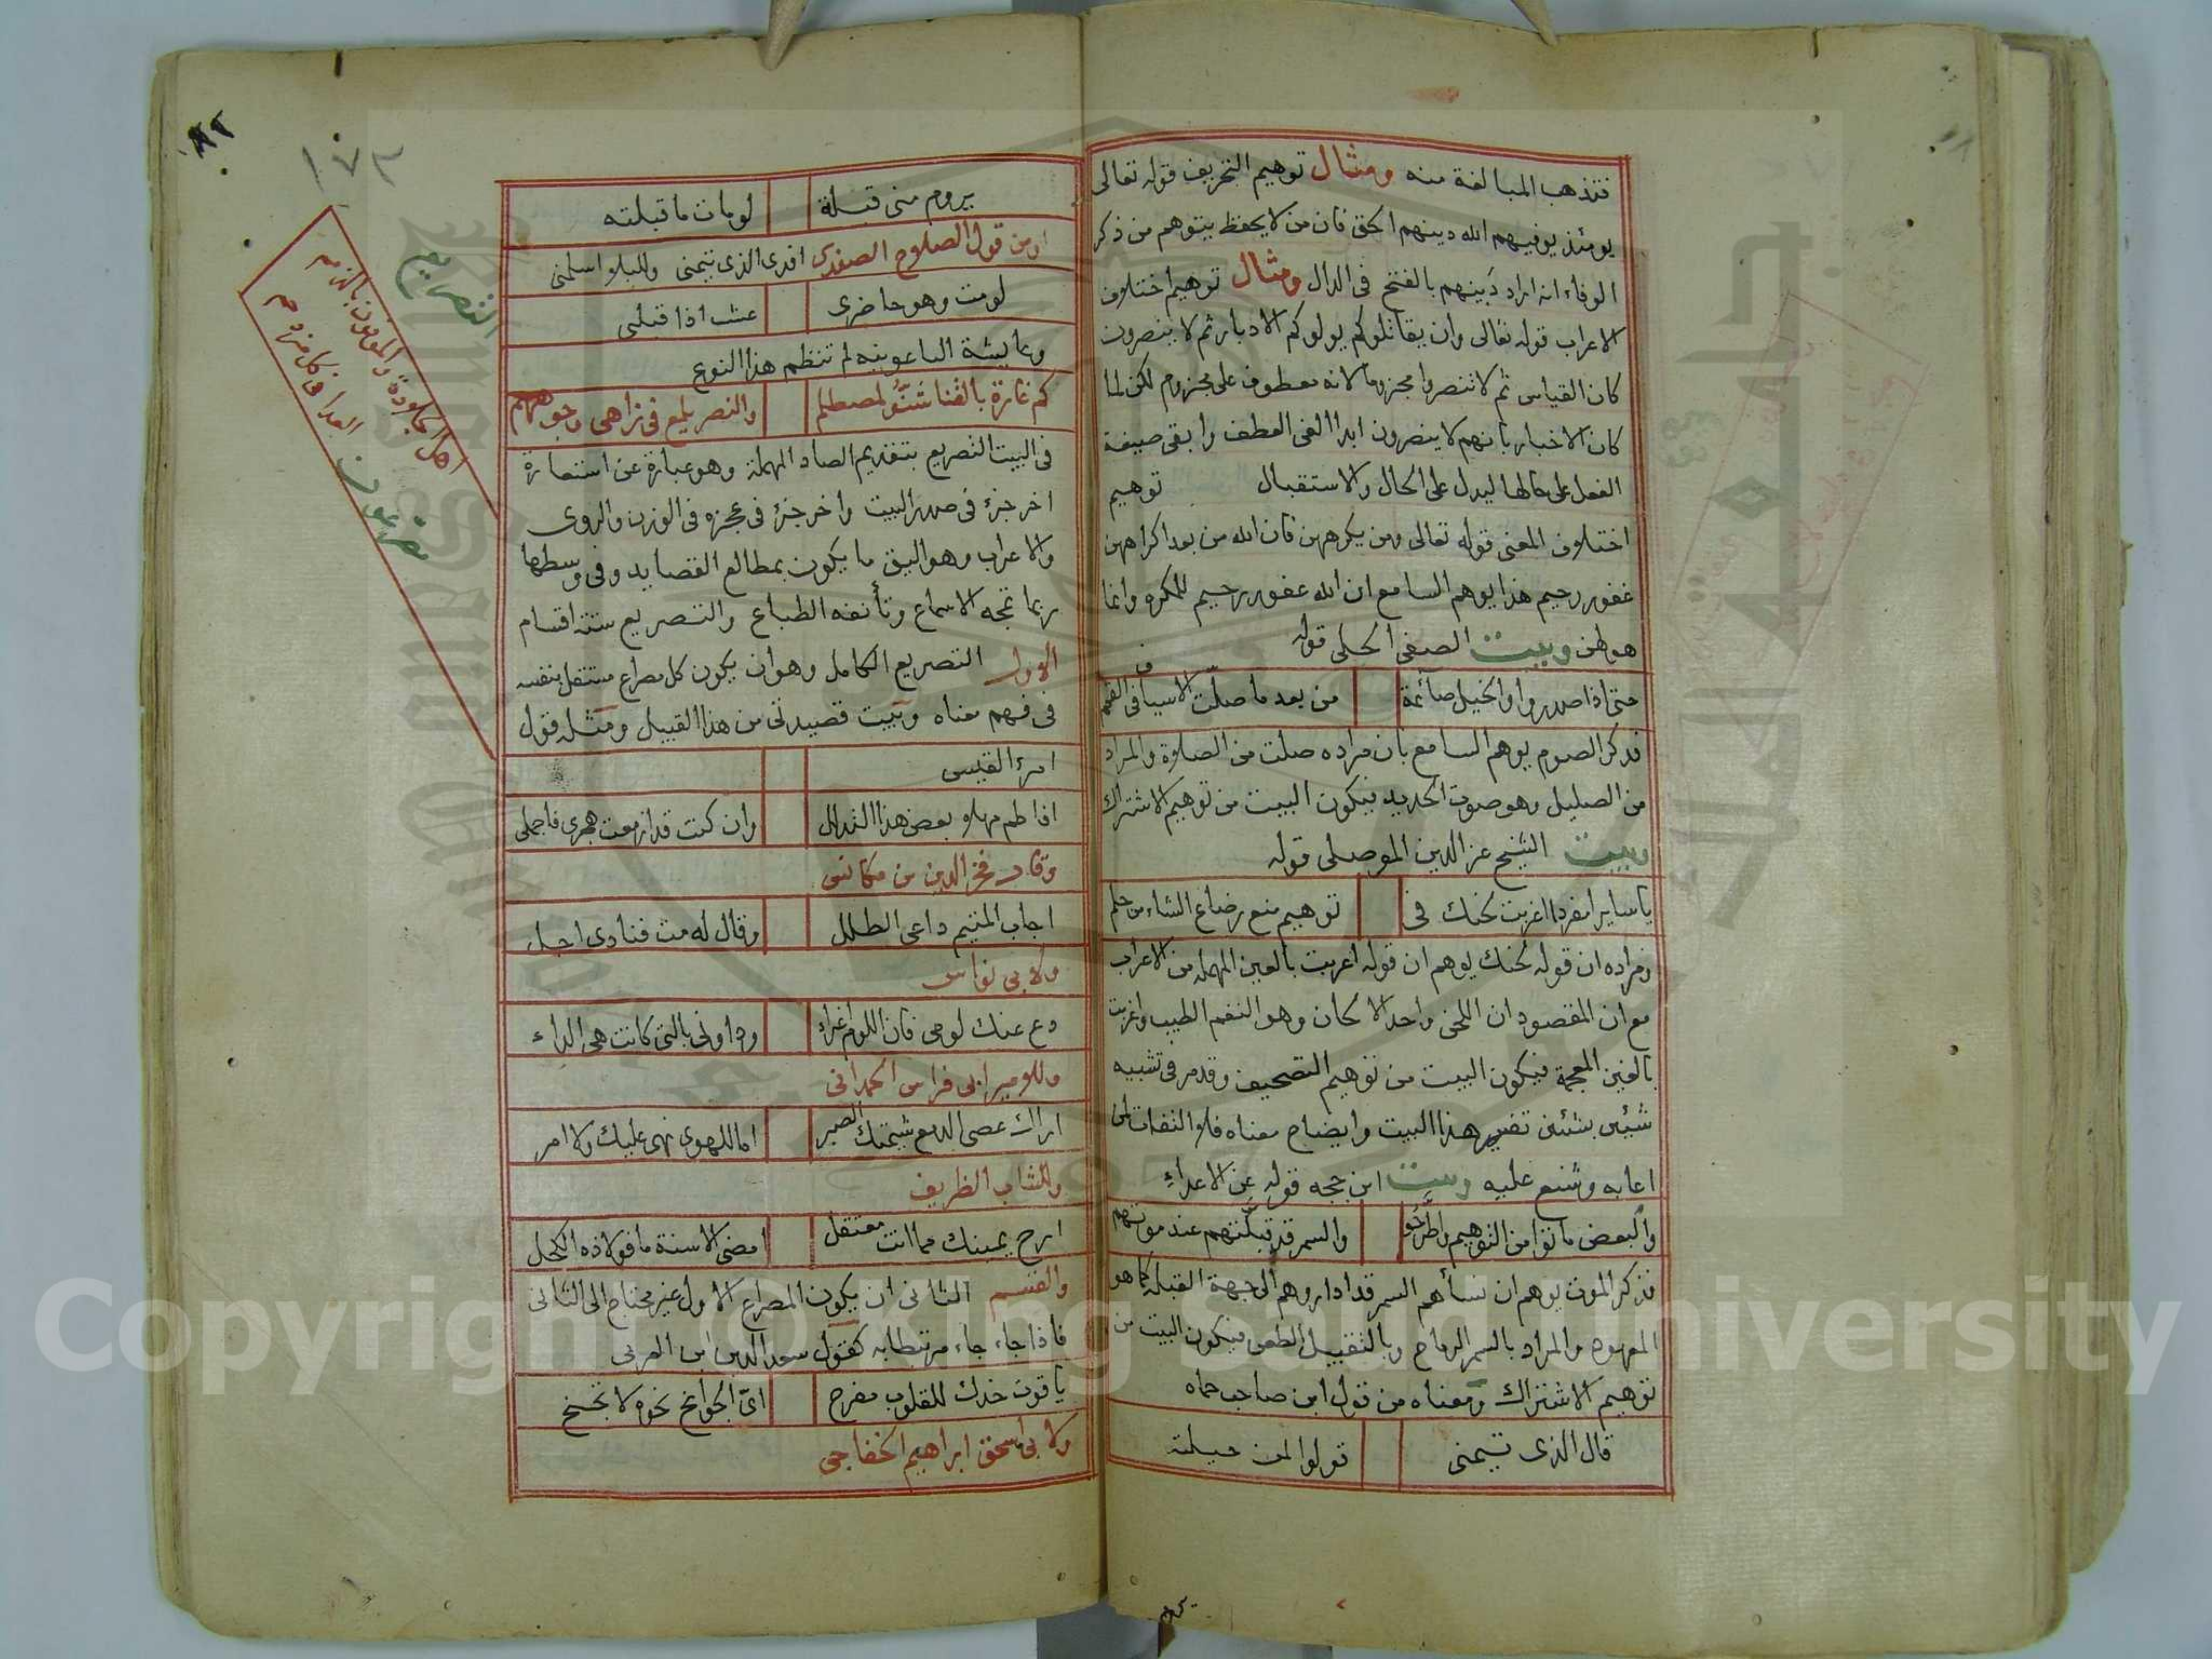 فتذهب المبالغة منه ومثال توهيم التحريف قوله تعالى
يومئذ يوفيهم الله دينهم الحق فان من لا يحفظ يتوهم من ذكر
الوفاء انه اراد دَينهم بالفتح فى الدال ومثال توهيم اختلاف
الاعراب قوله تعالى وان يقاتلوكم يولوكم الادبار ثم لا ينصرون
كان القياس ثم لا تنصروا مجزوما لانه معطوف على مجزوم لكن لما
كان الاخبار بانهم لا ينصرون ابدا الغى العطف وابقى صيغة
الفعل على حالها ليدل على الحال والاستقبال توهيم
اختلاف المعنى قوله تعالى ومن يكرههن فان الله من بعد اكراههن
غفور رحيم هذا يوهم السامع ان الله غفور رحيم للمكره وانما
هو لهن وبيت الصفى الحلى قوله
حتى اذا صدروا والخيل صائمة من بعد ما صلت الاسياف فى القمم
فذكر الصوم يوهم السامع بان مراده صلت من الصلاة والمراد
من الصليل وهو صوت الحديد فيكون البيت من توهيم الاشتراك
وبيت الشيخ عز الدين الموصلى قوله
يا سايرا مفردا اغربت لحنك فى توهيم منع رضاع الشاء من حلم
ومراده ان قوله لحنك يوهم ان قوله اعربت بالعين المهمله من الاعراب
مع ان المقصود ان اللحن واحد الالحان وهو النغم الطيب واغربت
بالغين المعجمة فيكون البيت من توهيم التصحيف وقد مر فى تشبيه
شيئين بشيئين تفسير هذا البيت وايضاح معناه فلا التفات لمن
اعابه وشنع عليه وبيت ابن حجه قوله عن الاعداء
والبعض ماتوا من التوهيم واطرحوا والسمر قد قبلتهم عند موتهم
فذكر الموت يوهم ان نساءهم السمر قد اداروهم الى جهة القبله كما هو
المعهود والمراد بالسمر الرماح وبالتقبيل الطعن فيكون البيت من
توهيم الاشتراك ومعناه من قول ابن صاحب حماه
قال الذى تيمنى قولوا لمن حيلته
يروم منى قبلة لو مات ما قبلته
ومن قول الصلاح الصفدى افدى الذى تيمنى وللبلا اسلمنى
لو مت وهو حاضرى عشت اذا قبلنى
وعايشة الباعونيه لم تنظم هذا النوع
كم غارة بالقنا شنّوا لمصطلم والنصر يلمع فى زاهى وجوههم
فى البيت التصريع بتقديم الصاد المهملة وهو عبارة عن استعارة
اخر جزء فى صدر البيت واخر جزء فى عجزه فى الوزن والروى
والاعراب وهو اليق ما يكون بمطالع القصايد وفى وسطها
ربما تمجه الاسماع وتأنفه الطباع والتصريع ستة اقسام
الاول التصريع الكامل وهو ان يكون كل مصراع مستقل بنفسه
فى فهم معناه وبيت قصيدتى من هذا القبيل ومثله قول
امرء القيس
افاطم مهلا بعض هذا التدلل وان كنت قد ازمعت هجرى فاجملى
وقال فخر الدين بن مكانس
اجاب المتيم داعى الطلل وقال له مت فنادى اجل
ولابى نواس
دع عنك لومى فان اللوم اغراء وداونى بالتى كانت هى الداء
وللامير ابى فراس الحمدانى
اراك عصى الدمع شيمتك الصبر اما للهوى نهى عليك ولا امر
وللشاب الظريف
ارح يمينك مما انت معتقل امضى الاسنة ما فولاذه الكحل
والقسم الثانى ان يكون المصراع الاول غير محتاج الى الثانى
فاذا جاء جاء مرتبطا به كقول سعد الدين ابن العربى
ياقوت خدك للقلوب مفرح اىّ الجوانح نحوه لا تجنح
ولابى اسحق ابراهيم الخفاجى
التصريع
١٧٢
٨٢
Copyright © King Saud University